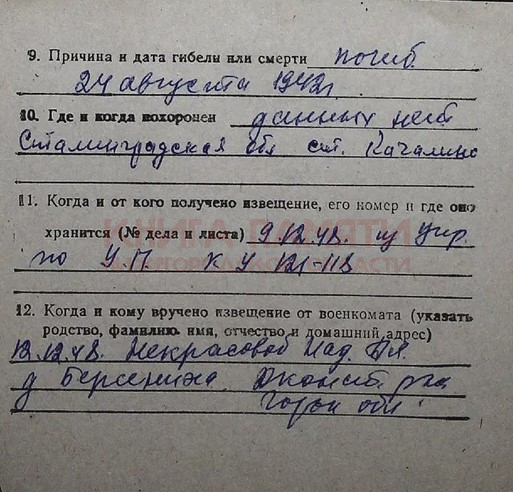 9. Причина и дата гибели или смерти погиб
24 августа 1942г
10. Где и когда похоронен данных нет
Сталинградская обл ст. Качалино
11. Когда и от кого получено извещение, его номер и где оно
хранится (№ дела и листа) 9.12.48. из Упр.
по У.П. К У 121-118
КНИГА ПАМЯТИ
12. Когда и кому вручено извещение от военкомата (указать
родство, фамилию, имя, отчество и домашний адрес)
12.12.48. Некрасовой Над.
д Берсениха
Горьк обл.